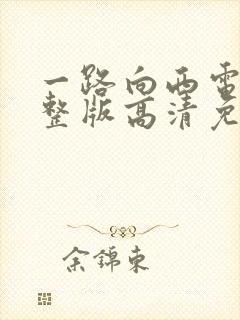 一路向西電
整版高清免
余錦東